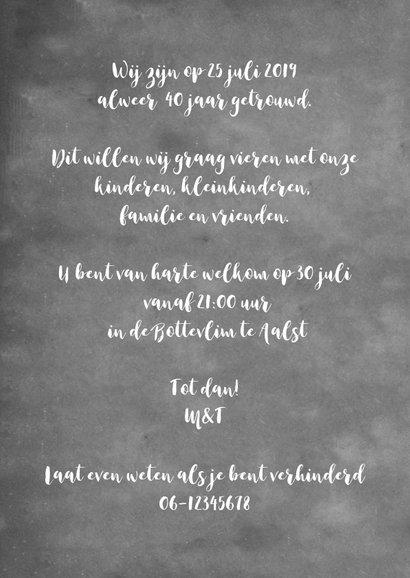 Wij zijn op 25 juli 2019
alweer 40 jaar getrouwd.
Dit willen wij graag vieren met onze
kinderen, kleinkinderen,
familie en vrienden.
U bent van harte welkom op 30 juli
vanaf 21:00 uur
in de Bottevlim te Aalst
Tot dan!
M&T
Laat even weten als je bent verhinderd
06-12345678